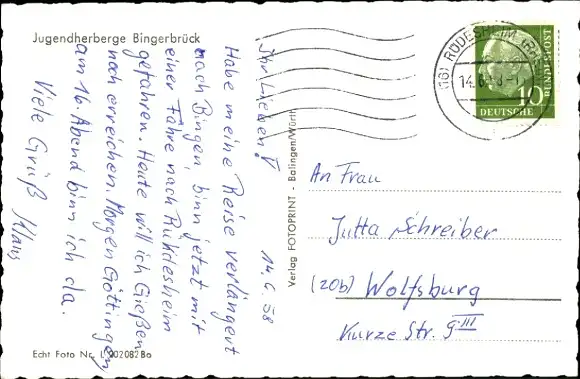 Jugendherberge Bingerbrück
14.6.58
Ihr Lieben!
Habe meine Reise verlängert
nach Bingen, binn jetzt mit
einer Fähre nach Rükdesheim
gefahren. Heute will ich Gießen
noch erreichen. Morgen Göttingen,
am 16. Abend binn ich da.
Viele Grüß Klaus
Echt Foto Nr. L 902082Ba
Verlag FOTOPRINT - Balingen/Württ
RÜDESHEIM
14.6.58
10
DEUTSCHE
BUNDESPOST
An Frau
Jutta Schreiber
(20b) Wolfsburg
Kurze Str. 9 III